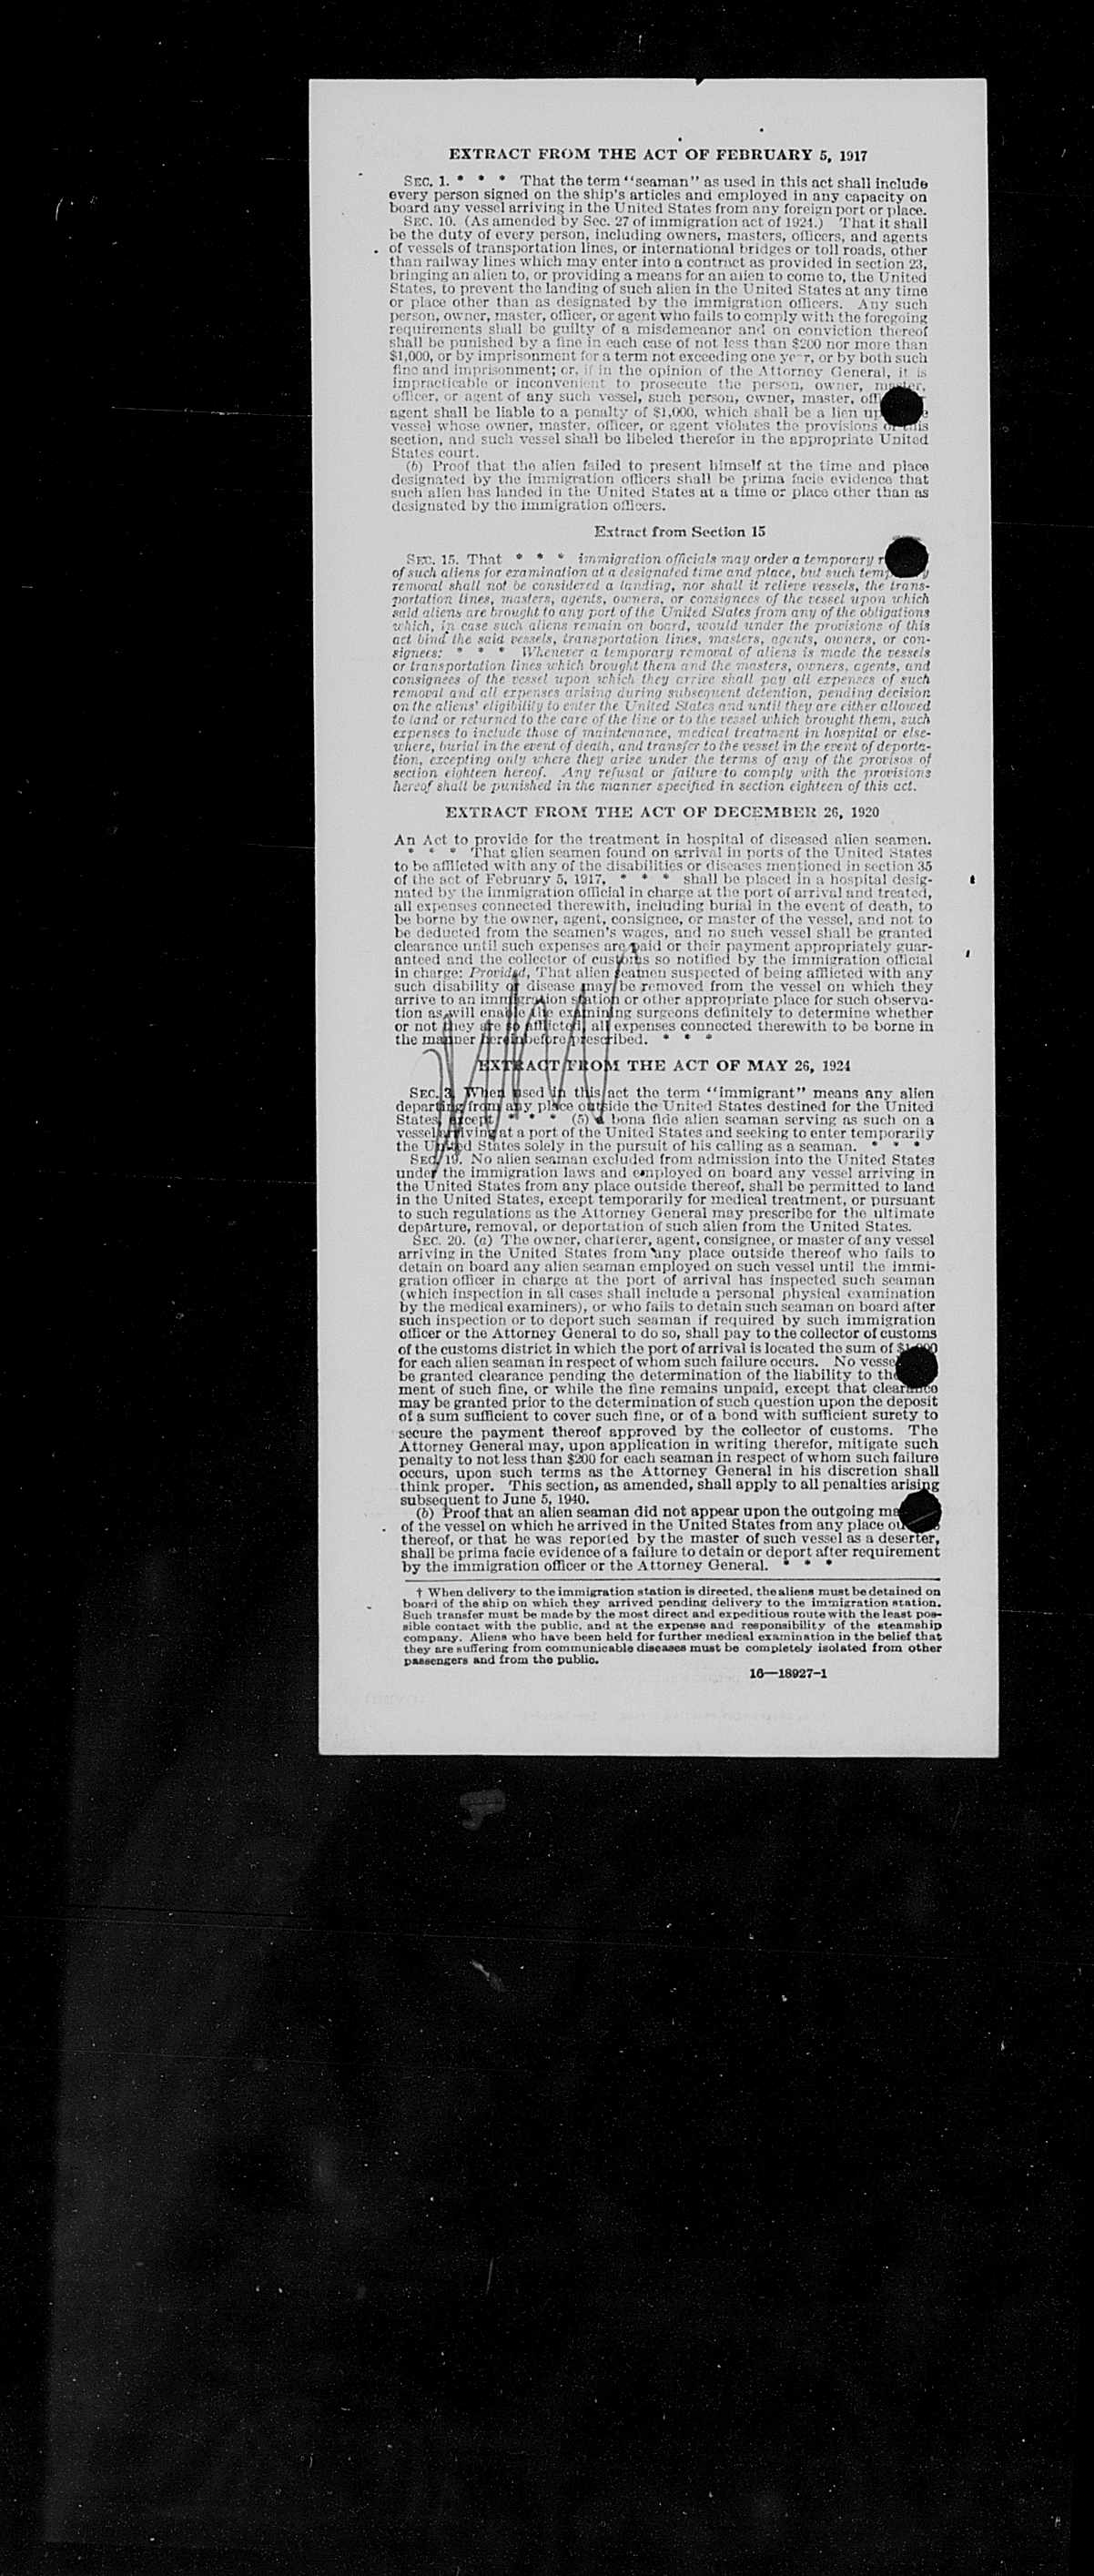 EXTRACT FROM THE ACT OF FEBRUARY 5, 1917
SEC. 1. * * * That the term "seaman" as used in this act shall include
every person signed on the ship's articles and employed in any capacity on
board any vessel arriving in the United States from any foreign port or place.
SEC. 10. (As amended by Sec. 27 of immigration act of 1924.) That it shall
be the duty of every person, including owners, masters, officers, and agents
of vessels of transportation lines, or international bridges or toll roads, other
than railway lines which may enter into a contract as provided in section 23,
bringing an alien to, or providing a means for an alien to come to, the United
States, to prevent the landing of such alien in the United States at any time
or place other than as designated by the immigration officers. Any such
person, owner, master, officer, or agent who fails to comply with the foregoing
requirements shall be guilty of a misdemeanor and on conviction thereof
shall be punished by a fine in each case of not less than $200 nor more than
$1,000, or by imprisonment for a term not exceeding one year, or by both such
fine and imprisonment; or, if in the opinion of the Attorney General, it is
impracticable or inconvenient to prosecute the person, owner, master,
officer, or agent of any such vessel, such person, owner, master,
agent shall be liable to a penalty of $1,000, which shall be a lien
vessel whose owner, master, officer, or agent violates the provisions of this
section, and such vessel shall be libeled therefor in the appropriate United
States court.
(b) Proof that the alien failed to present himself at the time and place
designated by the immigration officers shall be prima facie evidence that
such alien has landed in the United States at a time or place other than as
designated by the immigration officers.
Extract from Section 15
SEC. 15. That * * * immigration officials may order a temporary
of such aliens for examination at a designated time and place, but such
removal shall not be considered a landing, nor shall it relieve vessels, the trans-
portation lines, masters, agents, owners, or consignees of the vessel upon which
said aliens are brought to any port of the United States from any of the obligations
which, in case such aliens remain on board, would under the provisions of this
act bind the said vessels, transportation lines, masters, agents, owners, or con-
signees: * * * Whenever a temporary removal of aliens is made the vessels
or transportation lines which brought them and the masters, owners, agents, and
consignees of the vessel upon which they arrive shall pay all expenses of such
removal and all expenses arising during subsequent detention, pending decision
on the aliens' eligibility to enter the United States and until they are either allowed
to land or returned to the care of the line or to the vessel which brought them, such
expenses to include those of maintenance, medical treatment in hospital or else-
where, burial in the event of death, and transfer to the vessel in the event of deporta-
tion, excepting only where they arise under the terms of any of the provisos of
section eighteen hereof. Any refusal or failure to comply with the provisions
hereof shall be punished in the manner specified in section eighteen of this act.
EXTRACT FROM THE ACT OF DECEMBER 26, 1920
An Act to provide for the treatment in hospital of diseased alien seamen.
* * * That alien seamen found on arrival in ports of the United States
to be afflicted with any of the disabilities or diseases mentioned in section 35
of the act of February 5, 1917, * * * shall be placed in a hospital desig-
nated by the immigration official in charge at the port of arrival and treated,
all expenses connected therewith, including burial in the event of death, to
be borne by the owner, agent, consignee, or master of the vessel, and not to
be deducted from the seamen's wages, and no such vessel shall be granted
clearance until such expenses are paid or their payment appropriately guar-
anteed and the collector of customs so notified by the immigration official
in charge: Provided, That alien seamen suspected of being afflicted with any
such disability or disease may be removed from the vessel on which they
arrive to an immigration station or other appropriate place for such observa-
tion as will enable the examining surgeons definitely to determine whether
or not they are so afflicted, all expenses connected therewith to be borne in
the manner hereinbefore prescribed. * * *
EXTRACT FROM THE ACT OF MAY 26, 1924
SEC. 3. When used in this act the term "immigrant" means any alien
departing from any place outside the United States destined for the United
States, except * * * (5) a bona fide alien seaman serving as such on a
vessel arriving at a port of the United States and seeking to enter temporarily
the United States solely in the pursuit of his calling as a seaman. * * *
SEC. 19. No alien seaman excluded from admission into the United States
under the immigration laws and employed on board any vessel arriving in
the United States from any place outside thereof, shall be permitted to land
in the United States, except temporarily for medical treatment, or pursuant
to such regulations as the Attorney General may prescribe for the ultimate
departure, removal, or deportation of such alien from the United States.
SEC. 20. (a) The owner, charterer, agent, consignee, or master of any vessel
arriving in the United States from any place outside thereof who fails to
detain on board any alien seaman employed on such vessel until the immi-
gration officer in charge at the port of arrival has inspected such seaman
(which inspection in all cases shall include a personal physical examination
by the medical examiners), or who fails to detain such seaman on board after
such inspection or to deport such seaman if required by such immigration
officer or the Attorney General to do so, shall pay to the collector of customs
of the customs district in which the port of arrival is located the sum of $1,000
for each alien seaman in respect of whom such failure occurs. No
be granted clearance pending the determination of the liability to the
ment of such fine, or while the fine remains unpaid, except that clearance
may be granted prior to the determination of such question upon the deposit
of a sum sufficient to cover such fine, or of a bond with sufficient surety to
secure the payment thereof approved by the collector of customs. The
Attorney General may, upon application in writing therefor, mitigate such
penalty to not less than $200 for each seaman in respect of whom such failure
occurs, upon such terms as the Attorney General in his discretion shall
think proper. This section, as amended, shall apply to all penalties arising
subsequent to June 5, 1940.
(b) Proof that an alien seaman did not appear upon the outgoing
of the vessel on which he arrived in the United States from any place
thereof, or that he was reported by the master of such vessel as a deserter,
shall be prima facie evidence of a failure to detain or deport after requirement
by the immigration officer or the Attorney General. * * *
† When delivery to the immigration station is directed, the aliens must be detained on
board of the ship on which they arrived pending delivery to the immigration station.
Such transfer must be made by the most direct and expeditious route with the least pos-
sible contact with the public, and at the expense and responsibility of the steamship
company. Aliens who have been held for further medical examination in the belief that
they are suffering from communicable diseases must be completely isolated from other
passengers and from the public.
16—18927-1